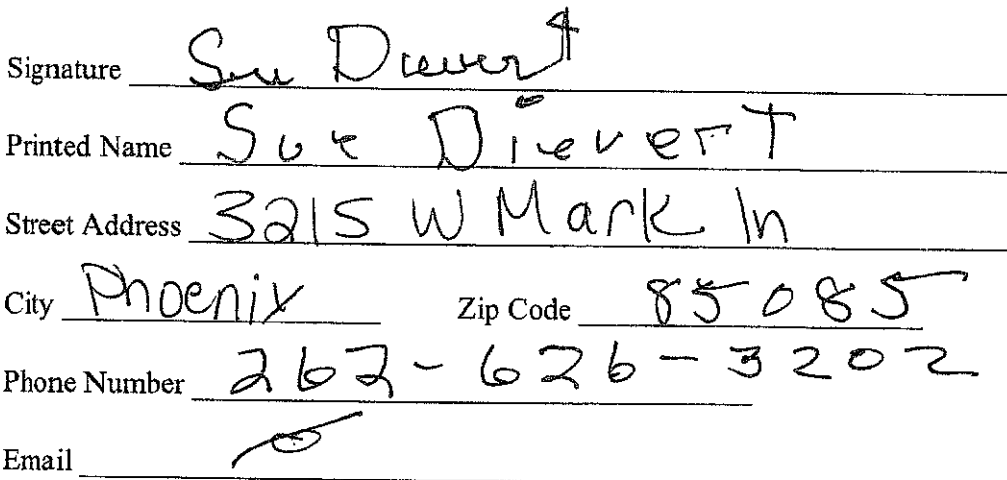 Signature Sue Dievert
Printed Name Sue Dievert
Street Address 3215 W Mark ln
City Phoenix Zip Code 85085
Phone Number 262-626-3202
Email